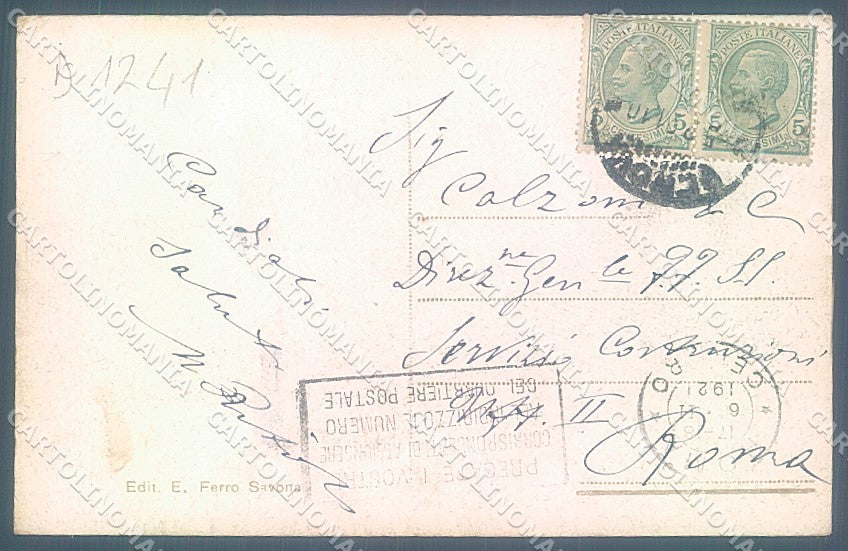 D, 1241
Cordiali
saluti
Edit. E. Ferro Savona
POSTE ITALIANE
5 CENTESIMI 5
POSTE ITALIANE
5 CENTESIMI 5
Sig
Calzoni & C
Direz.ne Gen le FF SS.
Servizio Costruzioni
II
Roma
ROMA CENTRO
6
1921
PREGATE I VOSTRI
CORRISPONDENTI DI AGGIUNGERE
ALL'INDIRIZZO IL NUMERO
DEL QUARTIERE POSTALE
CARTOLINOMANIA